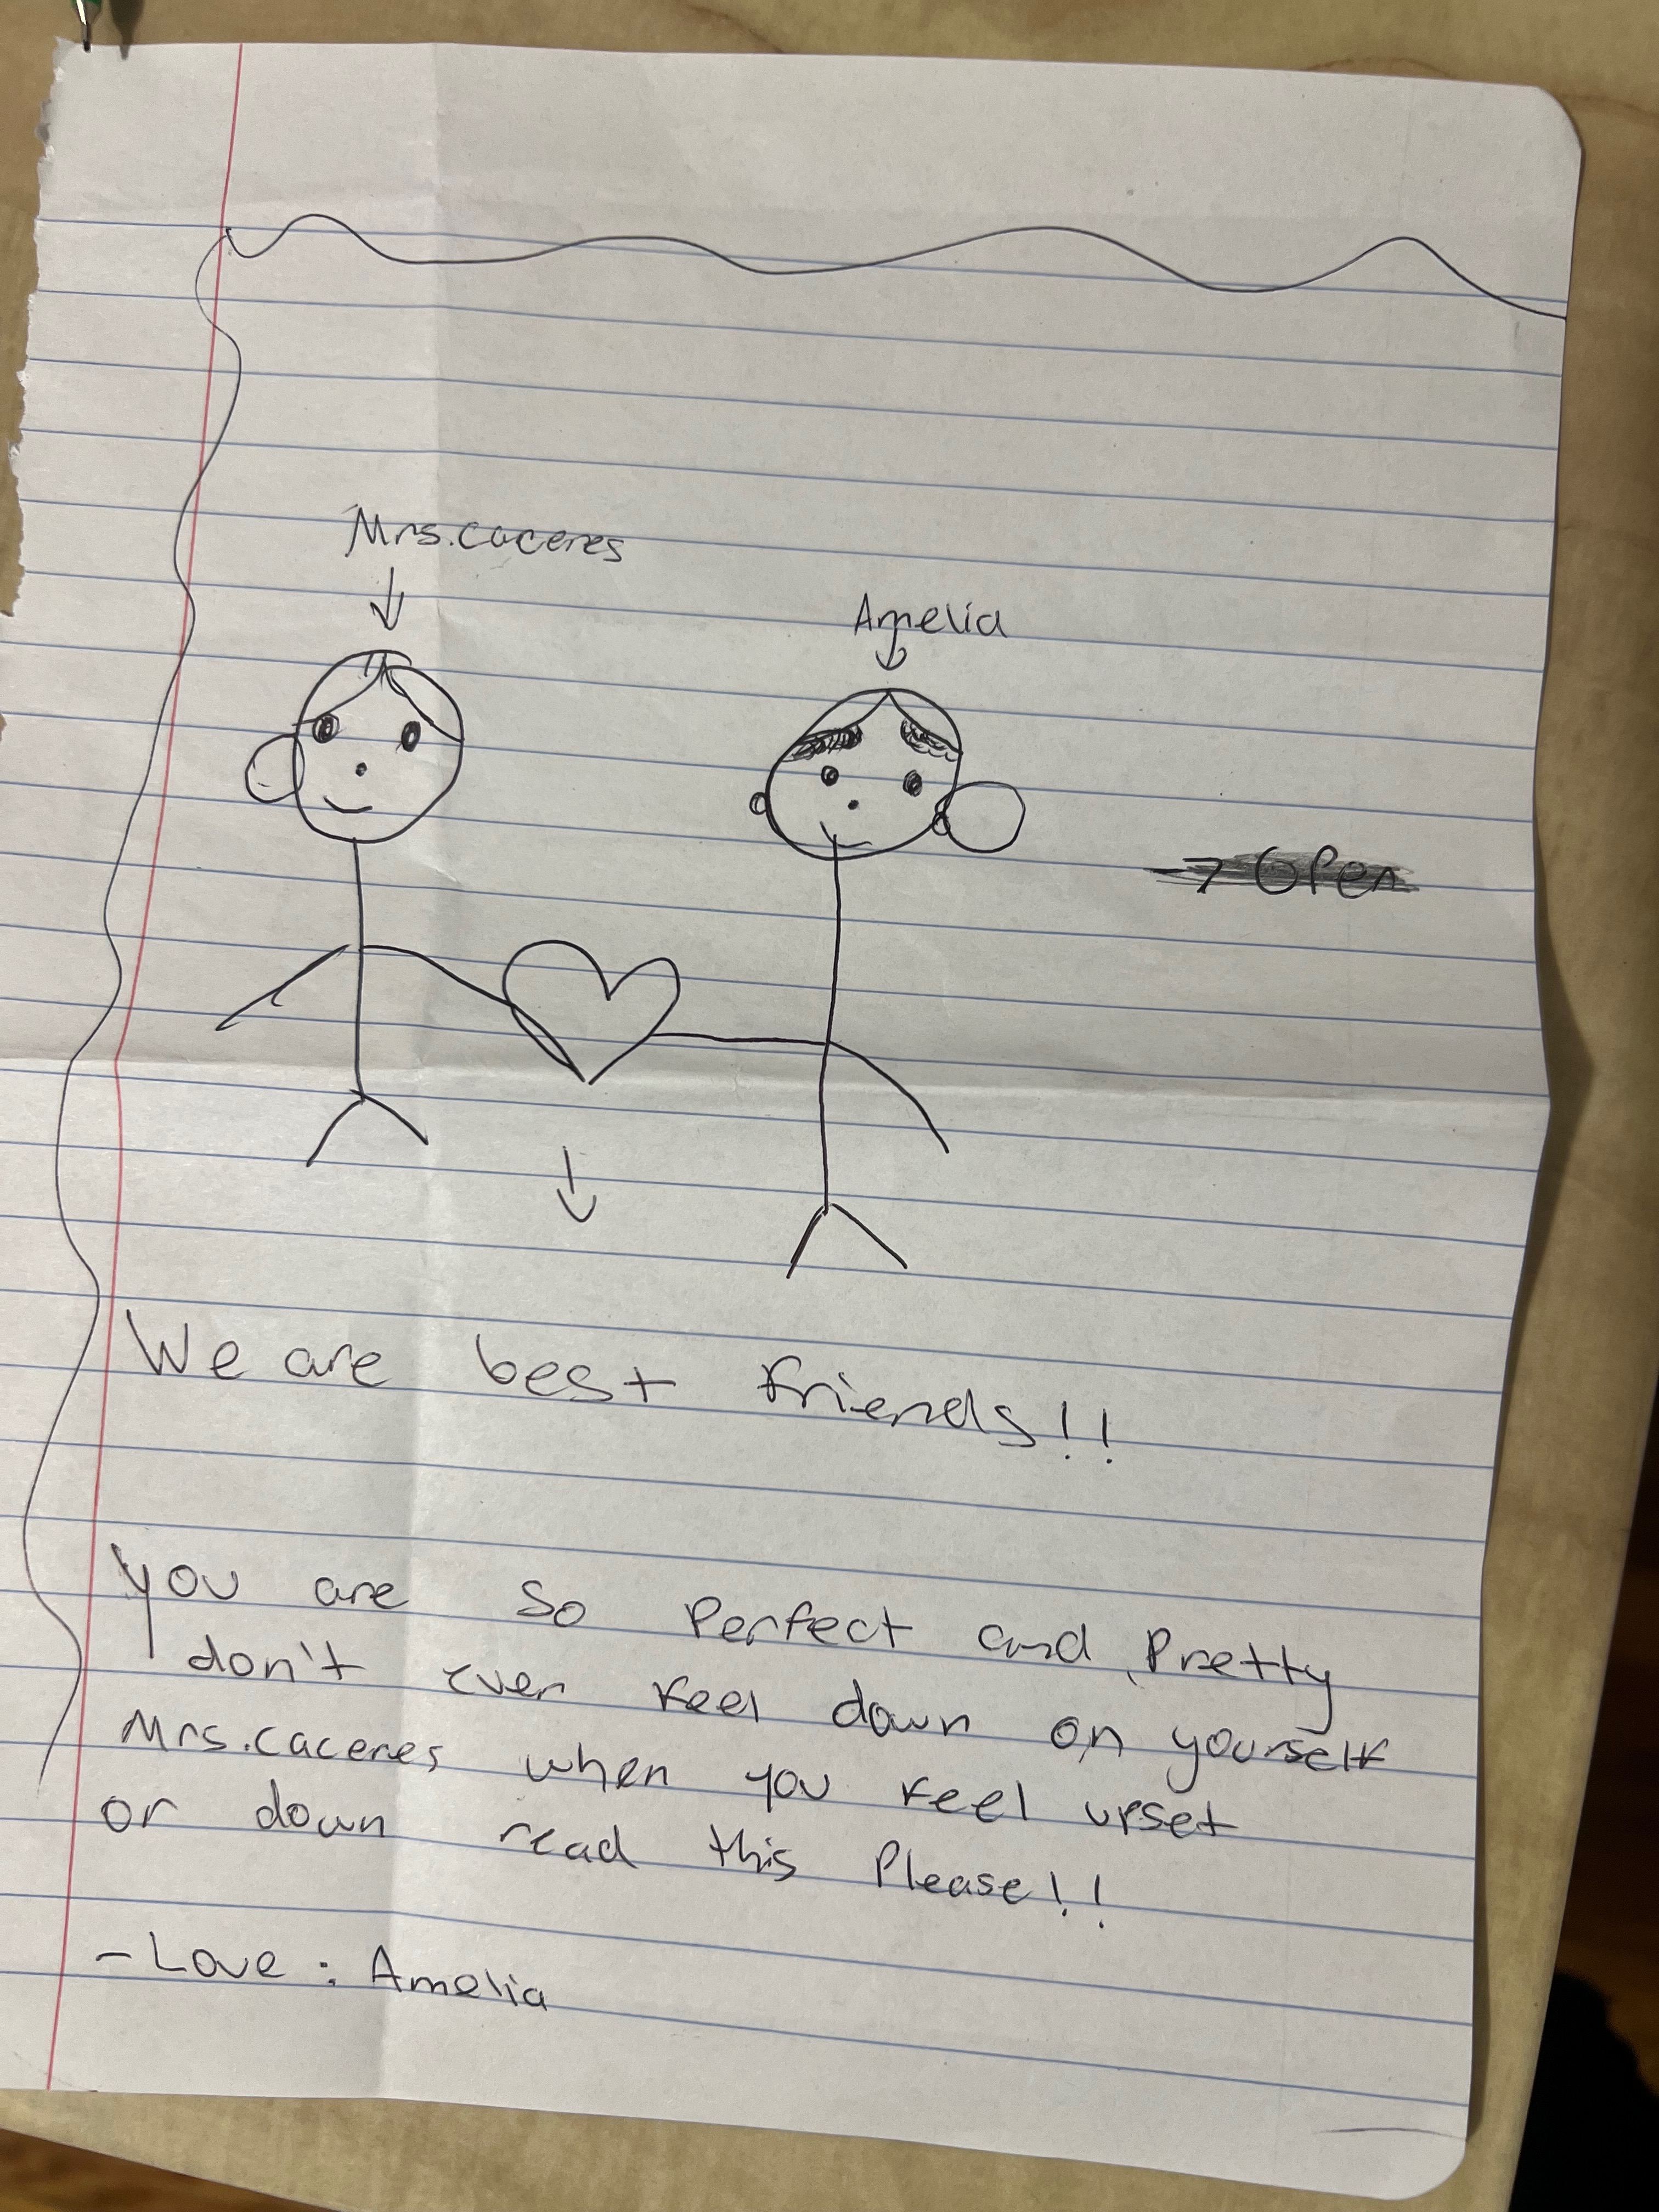 Mrs.caceres
Amelia
→ Open
We are best friends!!
You are so Perfect and Pretty
don't ever feel down on yourself
Mrs.caceres when you feel upset
or down read this Please!!
- Love : Amelia